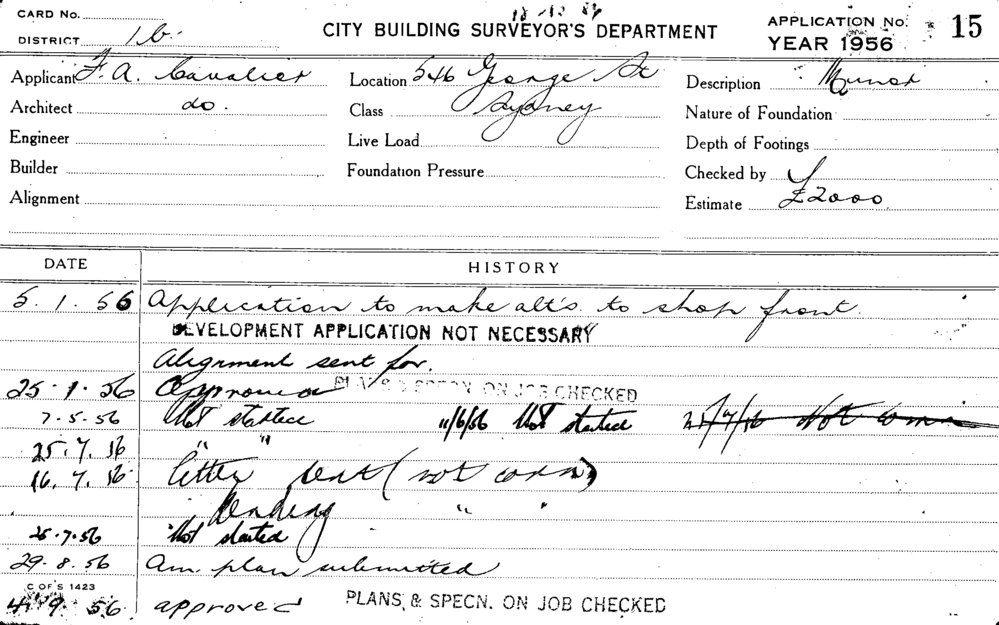 CARD No.
DISTRICT 1b.
CITY BUILDING SURVEYOR'S DEPARTMENT
APPLICATION No. 15
YEAR 1956
Applicant F. A. Cavalier
Location 546 George St
Description
Architect do.
Class Sydney
Nature of Foundation
Engineer
Live Load
Depth of Footings
Builder
Foundation Pressure
Checked by
Alignment
Estimate £2000
DATE HISTORY
5. 1. 56 Application to make alts. to shop front.
DEVELOPMENT APPLICATION NOT NECESSARY
Alignment sent for.
25. 1. 56 Approved PLANS & SPECN. ON JOB CHECKED
7. 5. 56 Not started 11/6/56 Not started 25/7/56 Not
25. 7. 56 " "
16. 7. 56 letter sent (not com)
Pending " "
25. 7. 56 Not started
29. 8. 56 Am. plan submitted
C OF S 1423
4. 9. 56. approved PLANS, & SPECN. ON JOB CHECKED